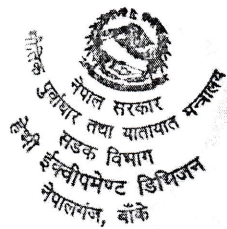 नेपाल सरकार
भौतिक पुर्वाधार तथा यातायात मन्त्रालय
सडक विभाग
हेभी ईक्वीपमेण्ट डिभिजन
नेपालगंज, बाँके